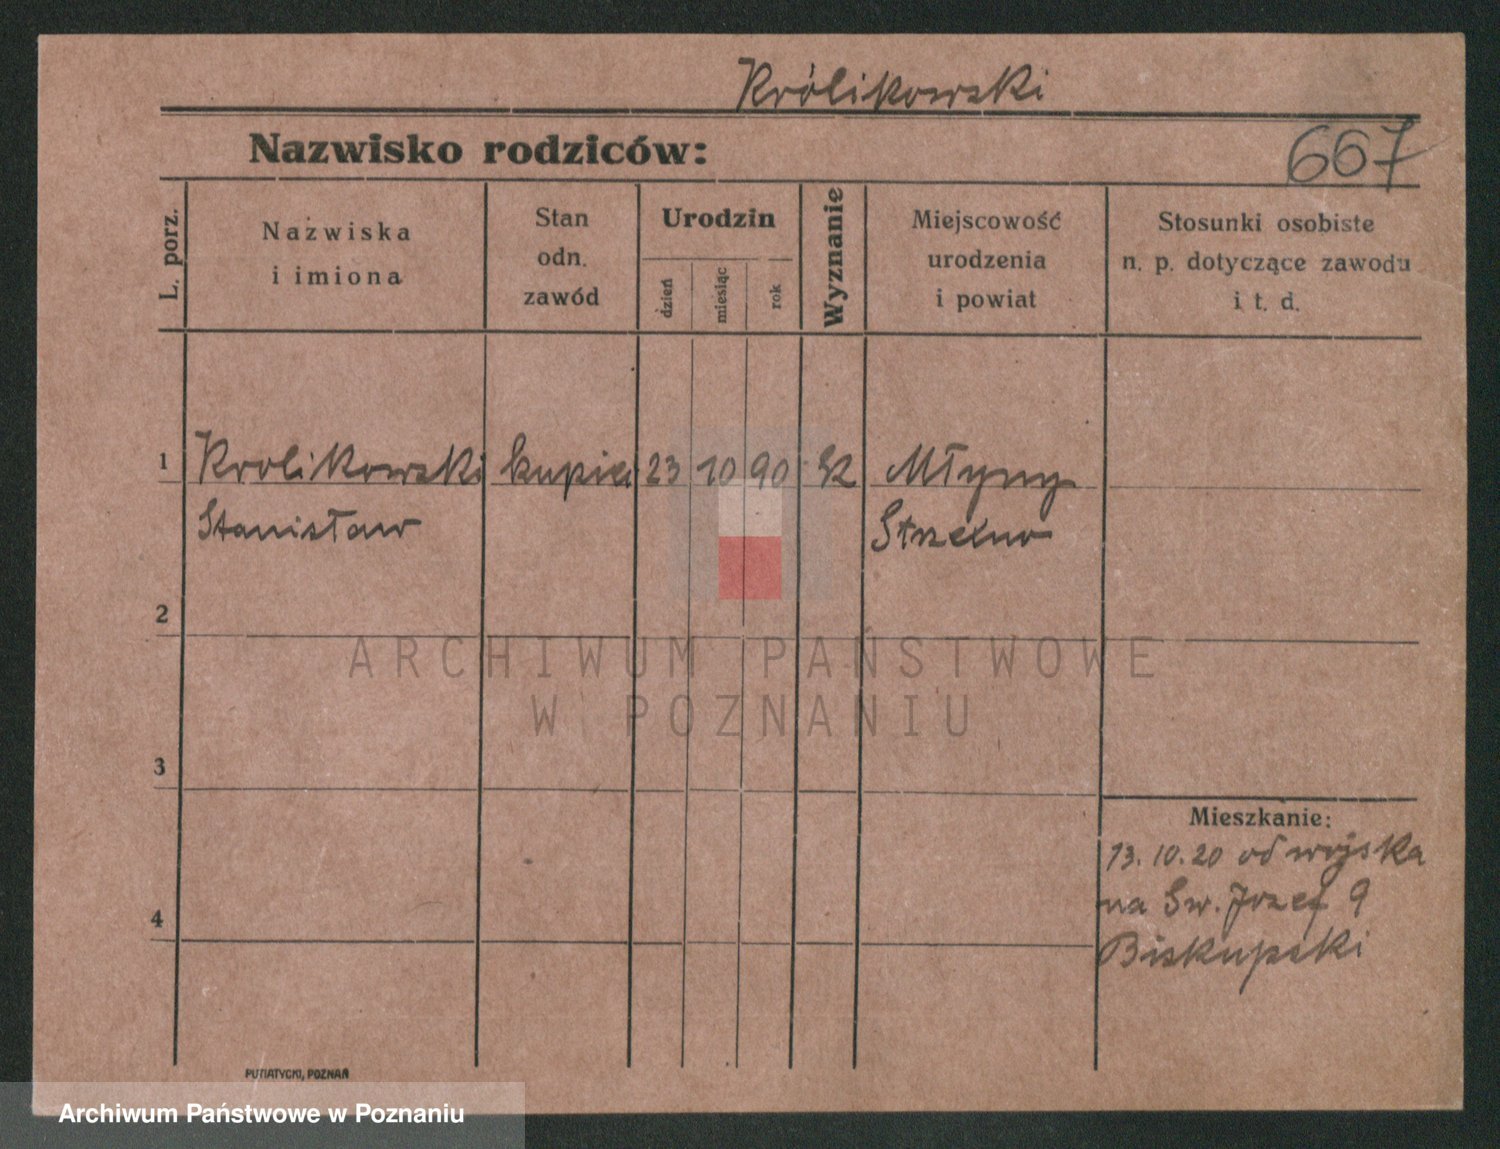 Królikowski
667
Nazwisko rodziców:
L. porz.
Nazwiska
i imiona
Stan
odn.
zawód
Urodzin
dzień
miesiąc
rok
Wyznanie
Miejscowość
urodzenia
i powiat
Stosunki osobiste
n. p. dotyczące zawodu
i t. d.
1 Krolikowski kupiec 23 10 90 k Młyny
Stanisław Strzelno
2
ARCHIWUM PAŃSTWOWE
W POZNANIU
3
Mieszkanie:
13.10.20 od wojska
4 na Św. Józef 9
Biskupski
PUTIATYCKI, POZNAŃ
Archiwum Państwowe w Poznaniu